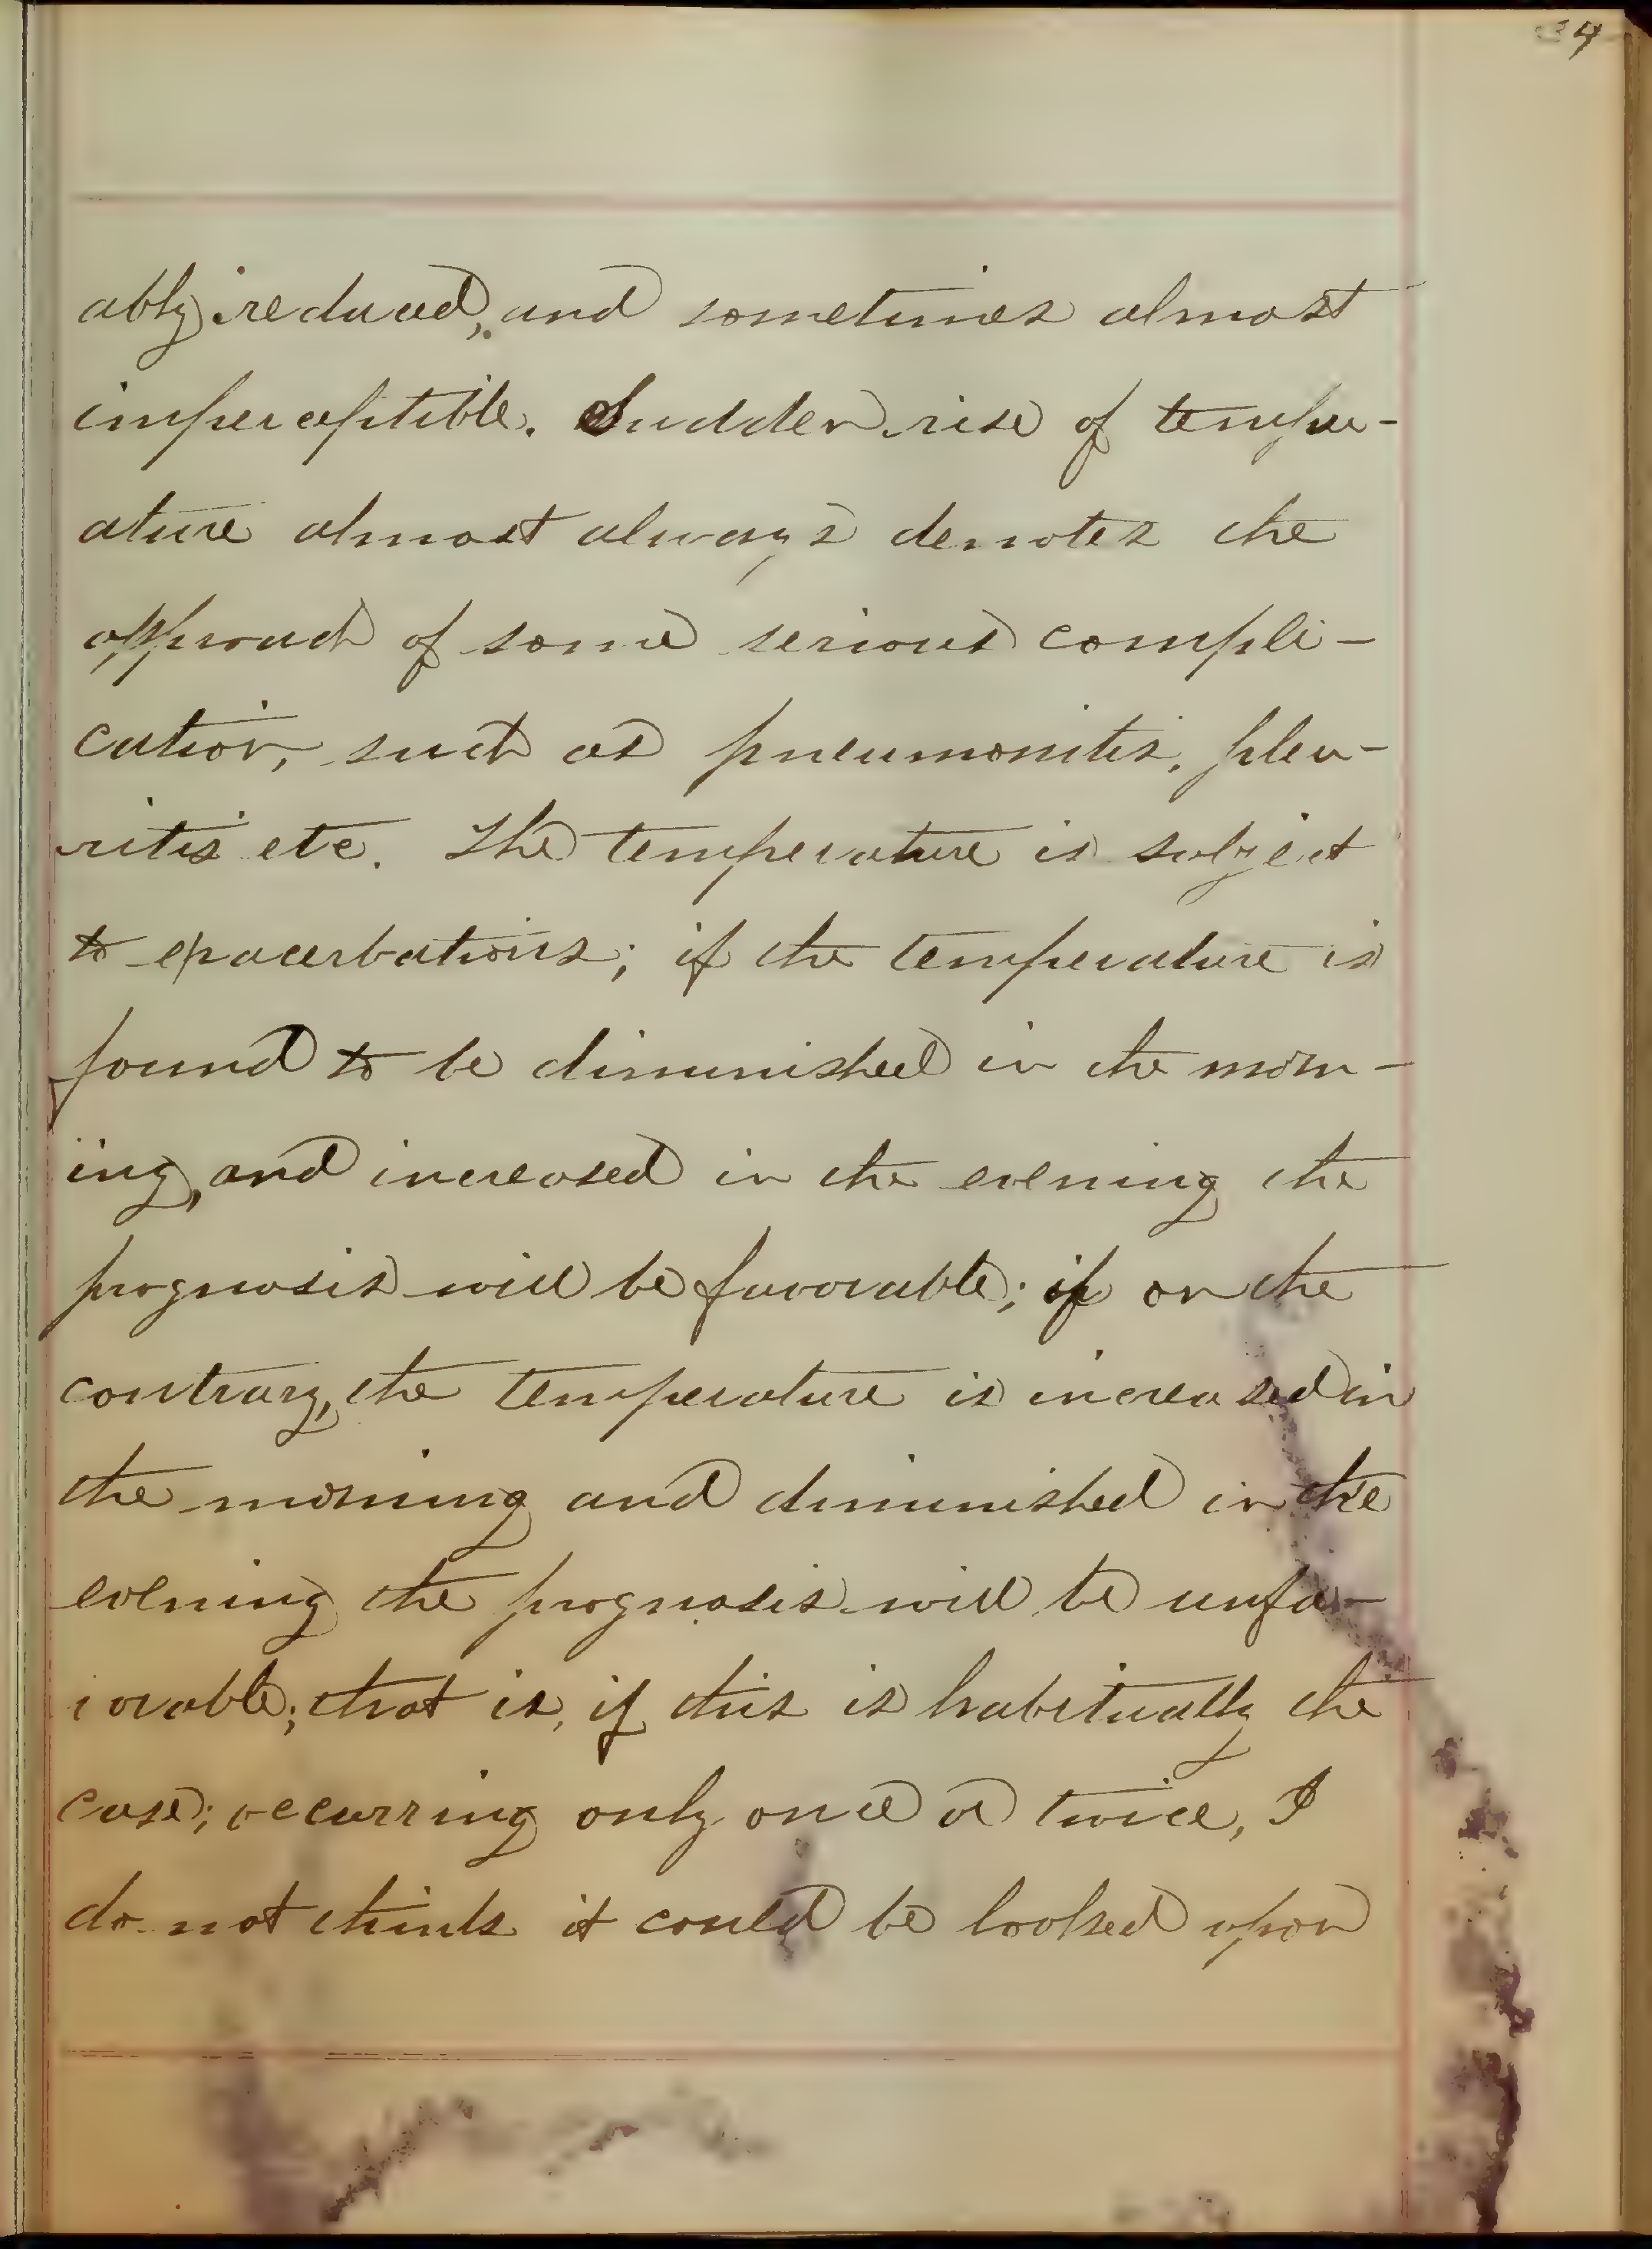 4
ably reduced, and sometimes almost
imperceptible. Sudden rise of temper-
ature almost always denotes the
approach of some serious compli-
cation, such as pneumonitis, pleu-
ritis etc. The temperature is subject
to exacerbations; if the temperature is
found to be diminished in the morn-
ing, and increased in the evening the
prognosis will be favorable; if on the
contrary, the temperature is increased in
the morning and diminished in the
evening the prognosis will be unfa-
vorable; that is, if this is habitually the
case; occurring only once or twice, I
do not think it could be looked upon